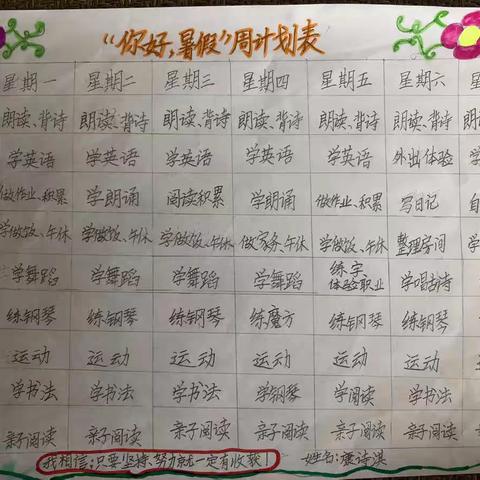 “你好,暑假”周计划表
星期一 星期二 星期三 星期四 星期五 星期六
朗读、背诗 朗读、背诗 朗读、背诗 朗读、背诗 朗读、背诗 朗读、背诗
学英语 学英语 学英语 学英语 学英语 外出体验
做作业、积累 学朗诵 阅读积累 学朗诵 做作业、积累 写日记
学做饭、午休 学做饭、午休 学做饭、午休 做家务、午休 学做饭、午休 整理房间
学舞蹈 学舞蹈 学舞蹈 学舞蹈 练字 体验职业 学唱古诗
练钢琴 练钢琴 练钢琴 练魔方 练钢琴 练钢琴
运动 运动 运动 运动 运动 运动
学书法 学书法 学书法 学钢琴 学阅读 学书法
亲子阅读 亲子阅读 亲子阅读 亲子阅读 亲子阅读 亲子阅读
我相信:只要坚持、努力就一定有收获! 姓名:诗淇